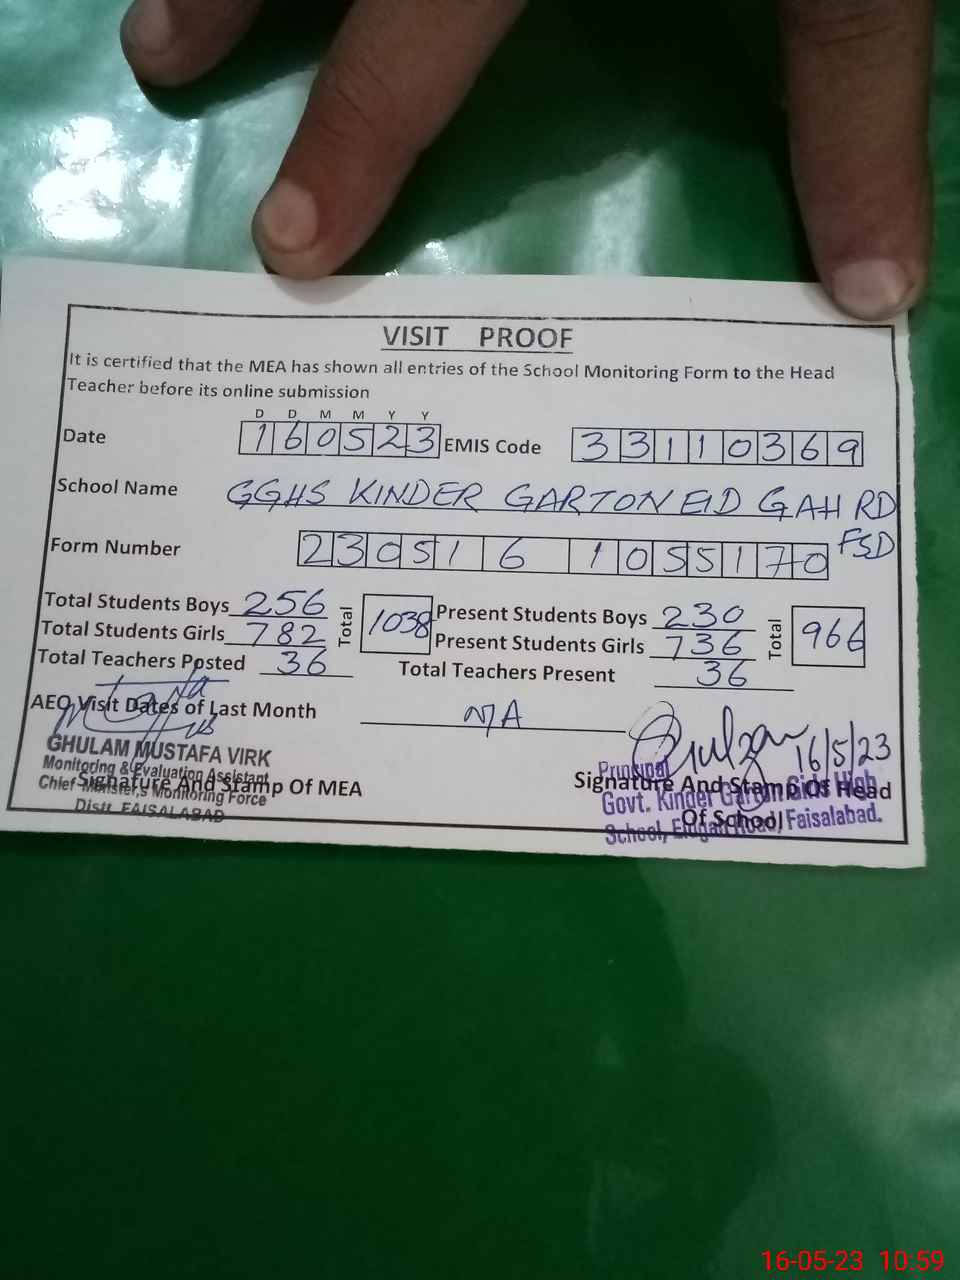 VISIT PROOF
It is certified that the MEA has shown all entries of the School Monitoring Form to the Head
Teacher before its online submission
D D M M Y Y
Date 160523 EMIS Code 33110369
School Name GGHS KINDER GARTON EID GAH RD
FSD
Form Number 230516 1055170
Total Students Boys 256 Total 1038 Present Students Boys 230 Total 966
Total Students Girls 782 Present Students Girls 736
Total Teachers Posted 36 Total Teachers Present 36
AEO Visit Dates of Last Month N/A
16/5/23
GHULAM MUSTAFA VIRK
Monitoring & Evaluation Assistant
Chief Minister,s Monitoring Force
Distt. FAISALABAD
Signature And Stamp Of MEA
Signature And Stamp Of Head
Of School
Principal
Govt. Kinder Garton Girls High
School, Eidgah Road, Faisalabad.
16-05-23 10:59